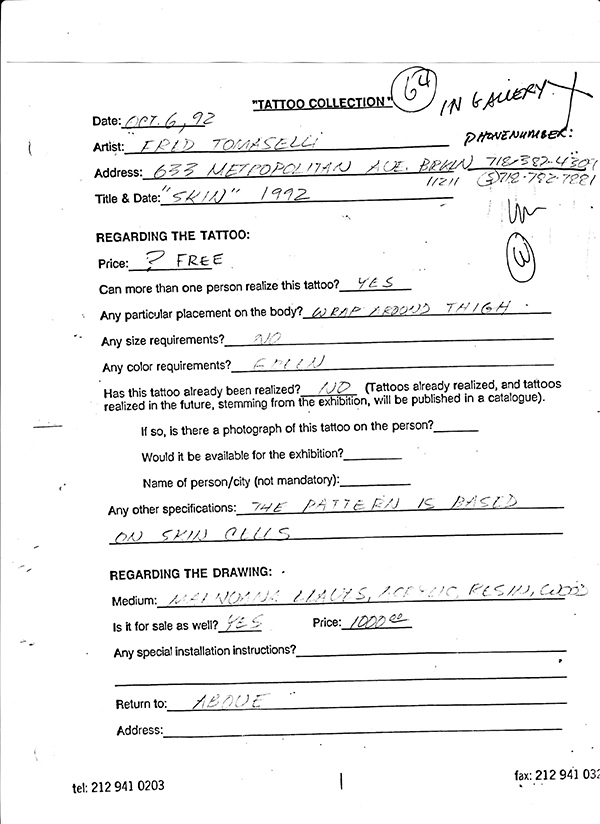 64
IN GALLERY
"TATTOO COLLECTION"
Date: OCT. 6, 92
PHONE NUMBER:
Artist: FRED TOMASELLI
Address: 633 METROPOLITAN AVE. BRKLN 718-382-4309
11211 (S) 718-782-7881
Title & Date: "SKIN" 1992
W
REGARDING THE TATTOO:
Price: ? FREE
Can more than one person realize this tattoo? YES
Any particular placement on the body? WRAP AROUND THIGH
Any size requirements? NO
Any color requirements? GREEN
Has this tattoo already been realized? NO (Tattoos already realized, and tattoos
realized in the future, stemming from the exhibition, will be published in a catalogue).
If so, is there a photograph of this tattoo on the person?
Would it be available for the exhibition?
Name of person/city (not mandatory):
Any other specifications: THE PATTERN IS BASED
ON SKIN CELLS
REGARDING THE DRAWING:
Medium: LEAVES, ACRYLIC, RESIN, WOOD
Is it for sale as well? YES Price: 1000.00
Any special installation instructions?
Return to: ABOVE
Address:
tel: 212 941 0203
fax: 212 941 032